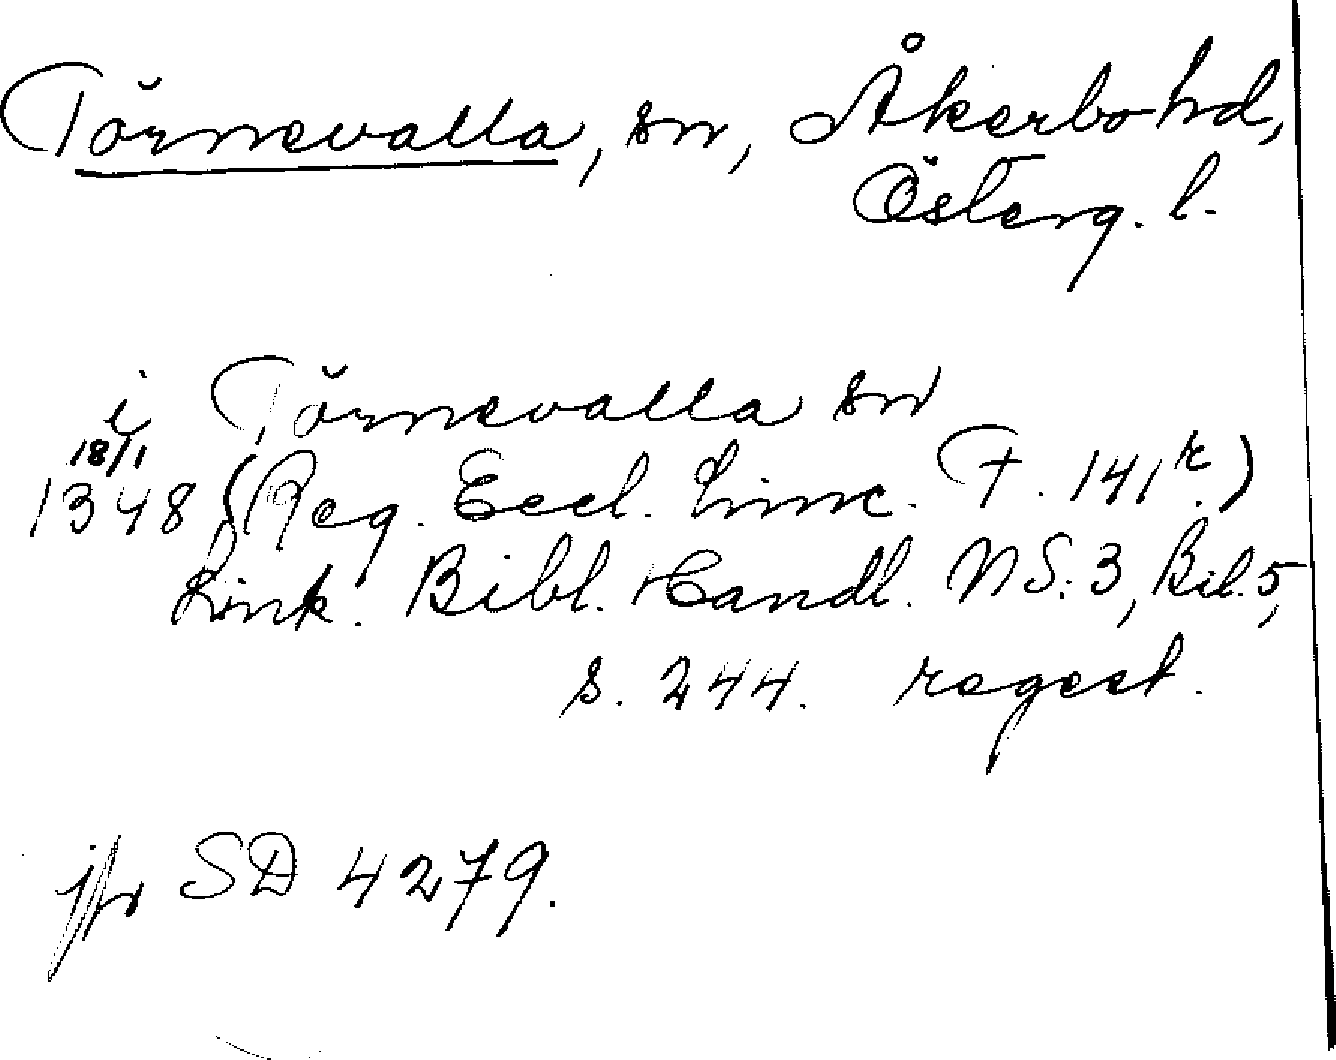 Törnevalla, sn, Åkerbo hd,
Österg. l.
i Törnevalla sn
18/1
1348 (Reg. Eccl. Linc. F. 141r.)
Link. Bibl. Handl. NS. 3, Bil. 5,
s. 244. regest.
jfr SD 4279.